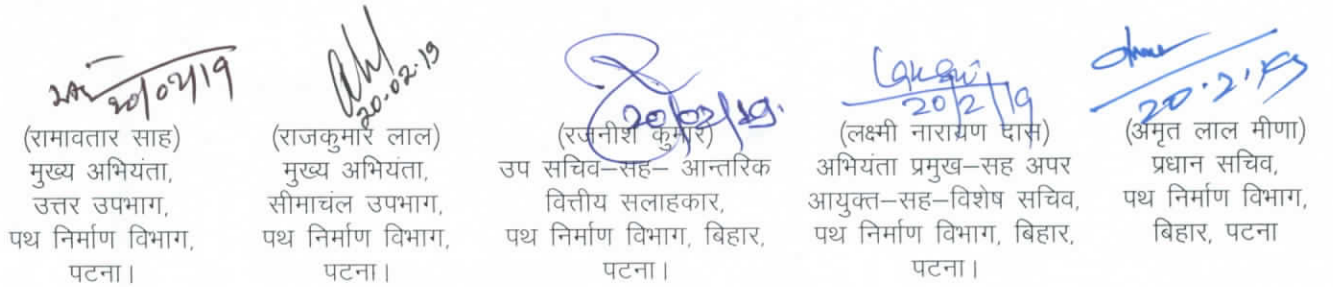 20/02/19
(रामावतार साह)
मुख्य अभियंता,
उत्तर उपभाग,
पथ निर्माण विभाग,
पटना।
20.02.19
(राजकुमार लाल)
मुख्य अभियंता,
सीमाचंल उपभाग,
पथ निर्माण विभाग,
पटना।
20/02/19.
(रजनीश कुमार)
उप सचिव–सह– आन्तरिक
वित्तीय सलाहकार,
पथ निर्माण विभाग, बिहार,
पटना।
20/2/19
(लक्ष्मी नारायण दास)
अभियंता प्रमुख–सह अपर
आयुक्त–सह–विशेष सचिव,
पथ निर्माण विभाग, बिहार,
पटना।
20.2.19
(अमृत लाल मीणा)
प्रधान सचिव,
पथ निर्माण विभाग,
बिहार, पटना